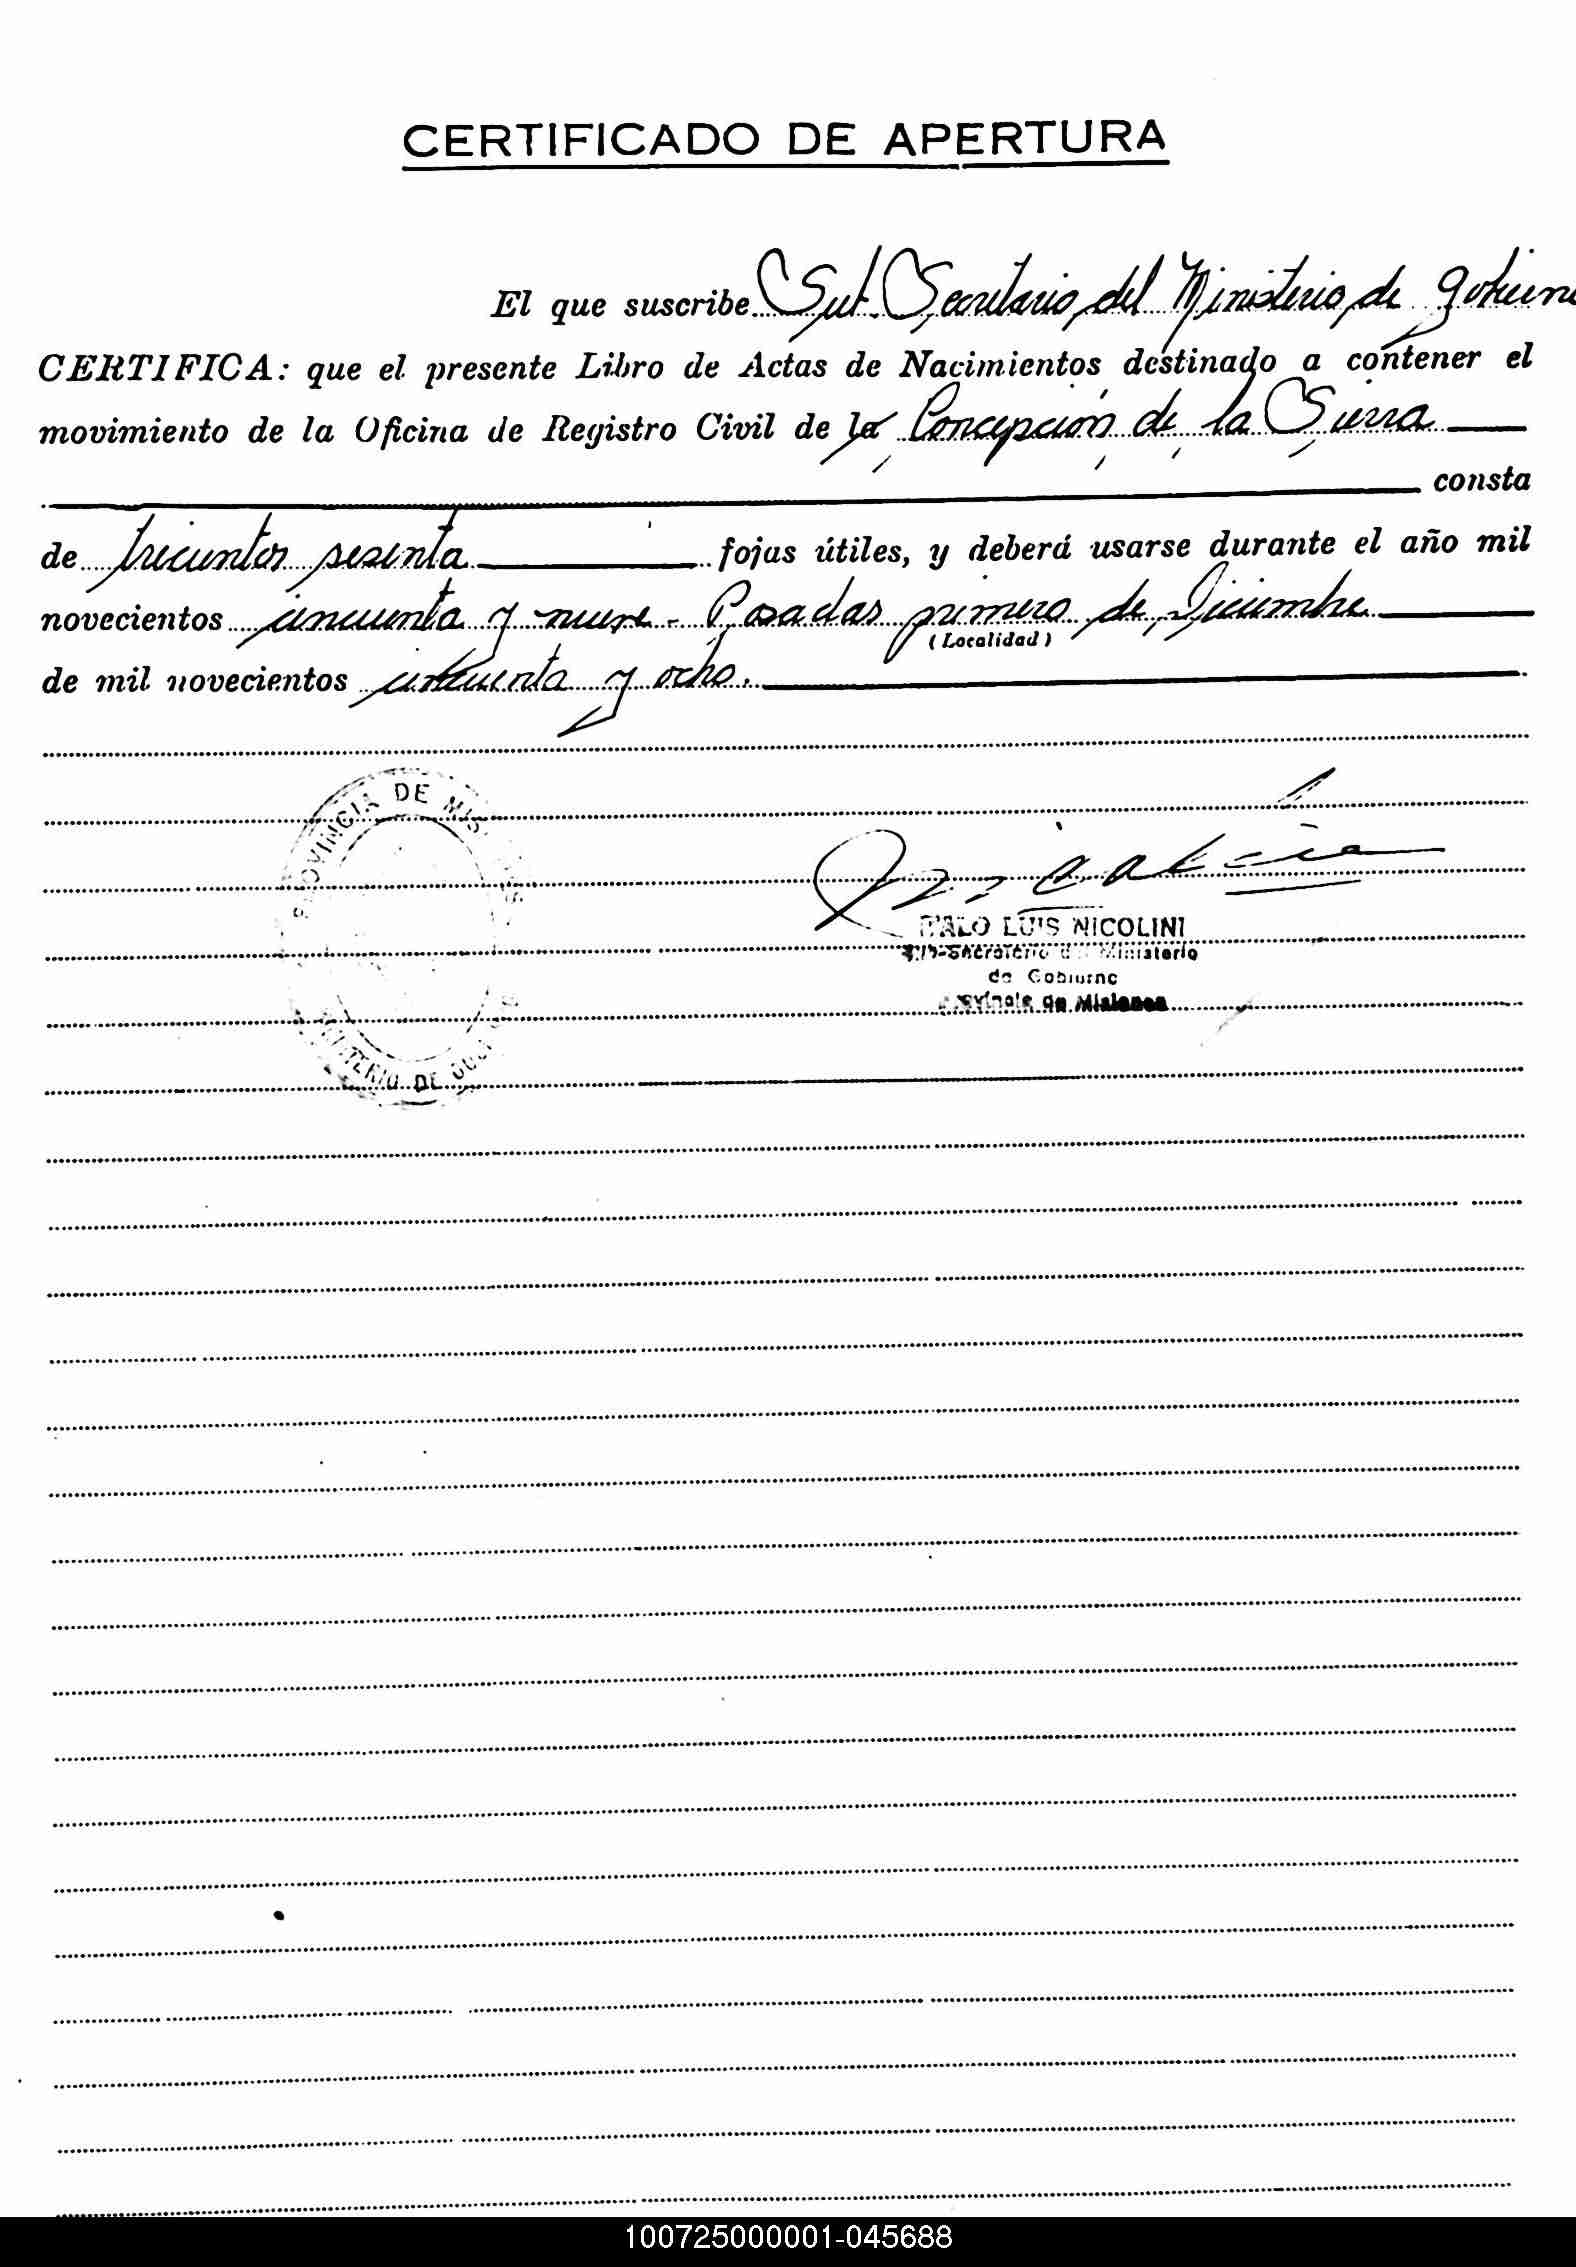 CERTIFICADO DE APERTURA
El que suscribe Sub. Secretario, del Ministerio, de gobierno
CERTIFICA: que el presente Libro de Actas de Nacimientos destinado a contener el
movimiento de la Oficina de Registro Civil de la Concepción de la Sierra
consta
de tricientos sesenta fojas útiles, y deberá usarse durante el año mil
novecientos cincuenta y nueve - Posadas primero de Diciembre
(Localidad)
de mil novecientos cincuenta y ocho.
PROVINCIA DE MISIONES
MINISTERIO DE
ITALO LUIS NICOLINI
Sub-Secretario del Ministerio
de Gobierno
Provincia de Misiones
100725000001-045688